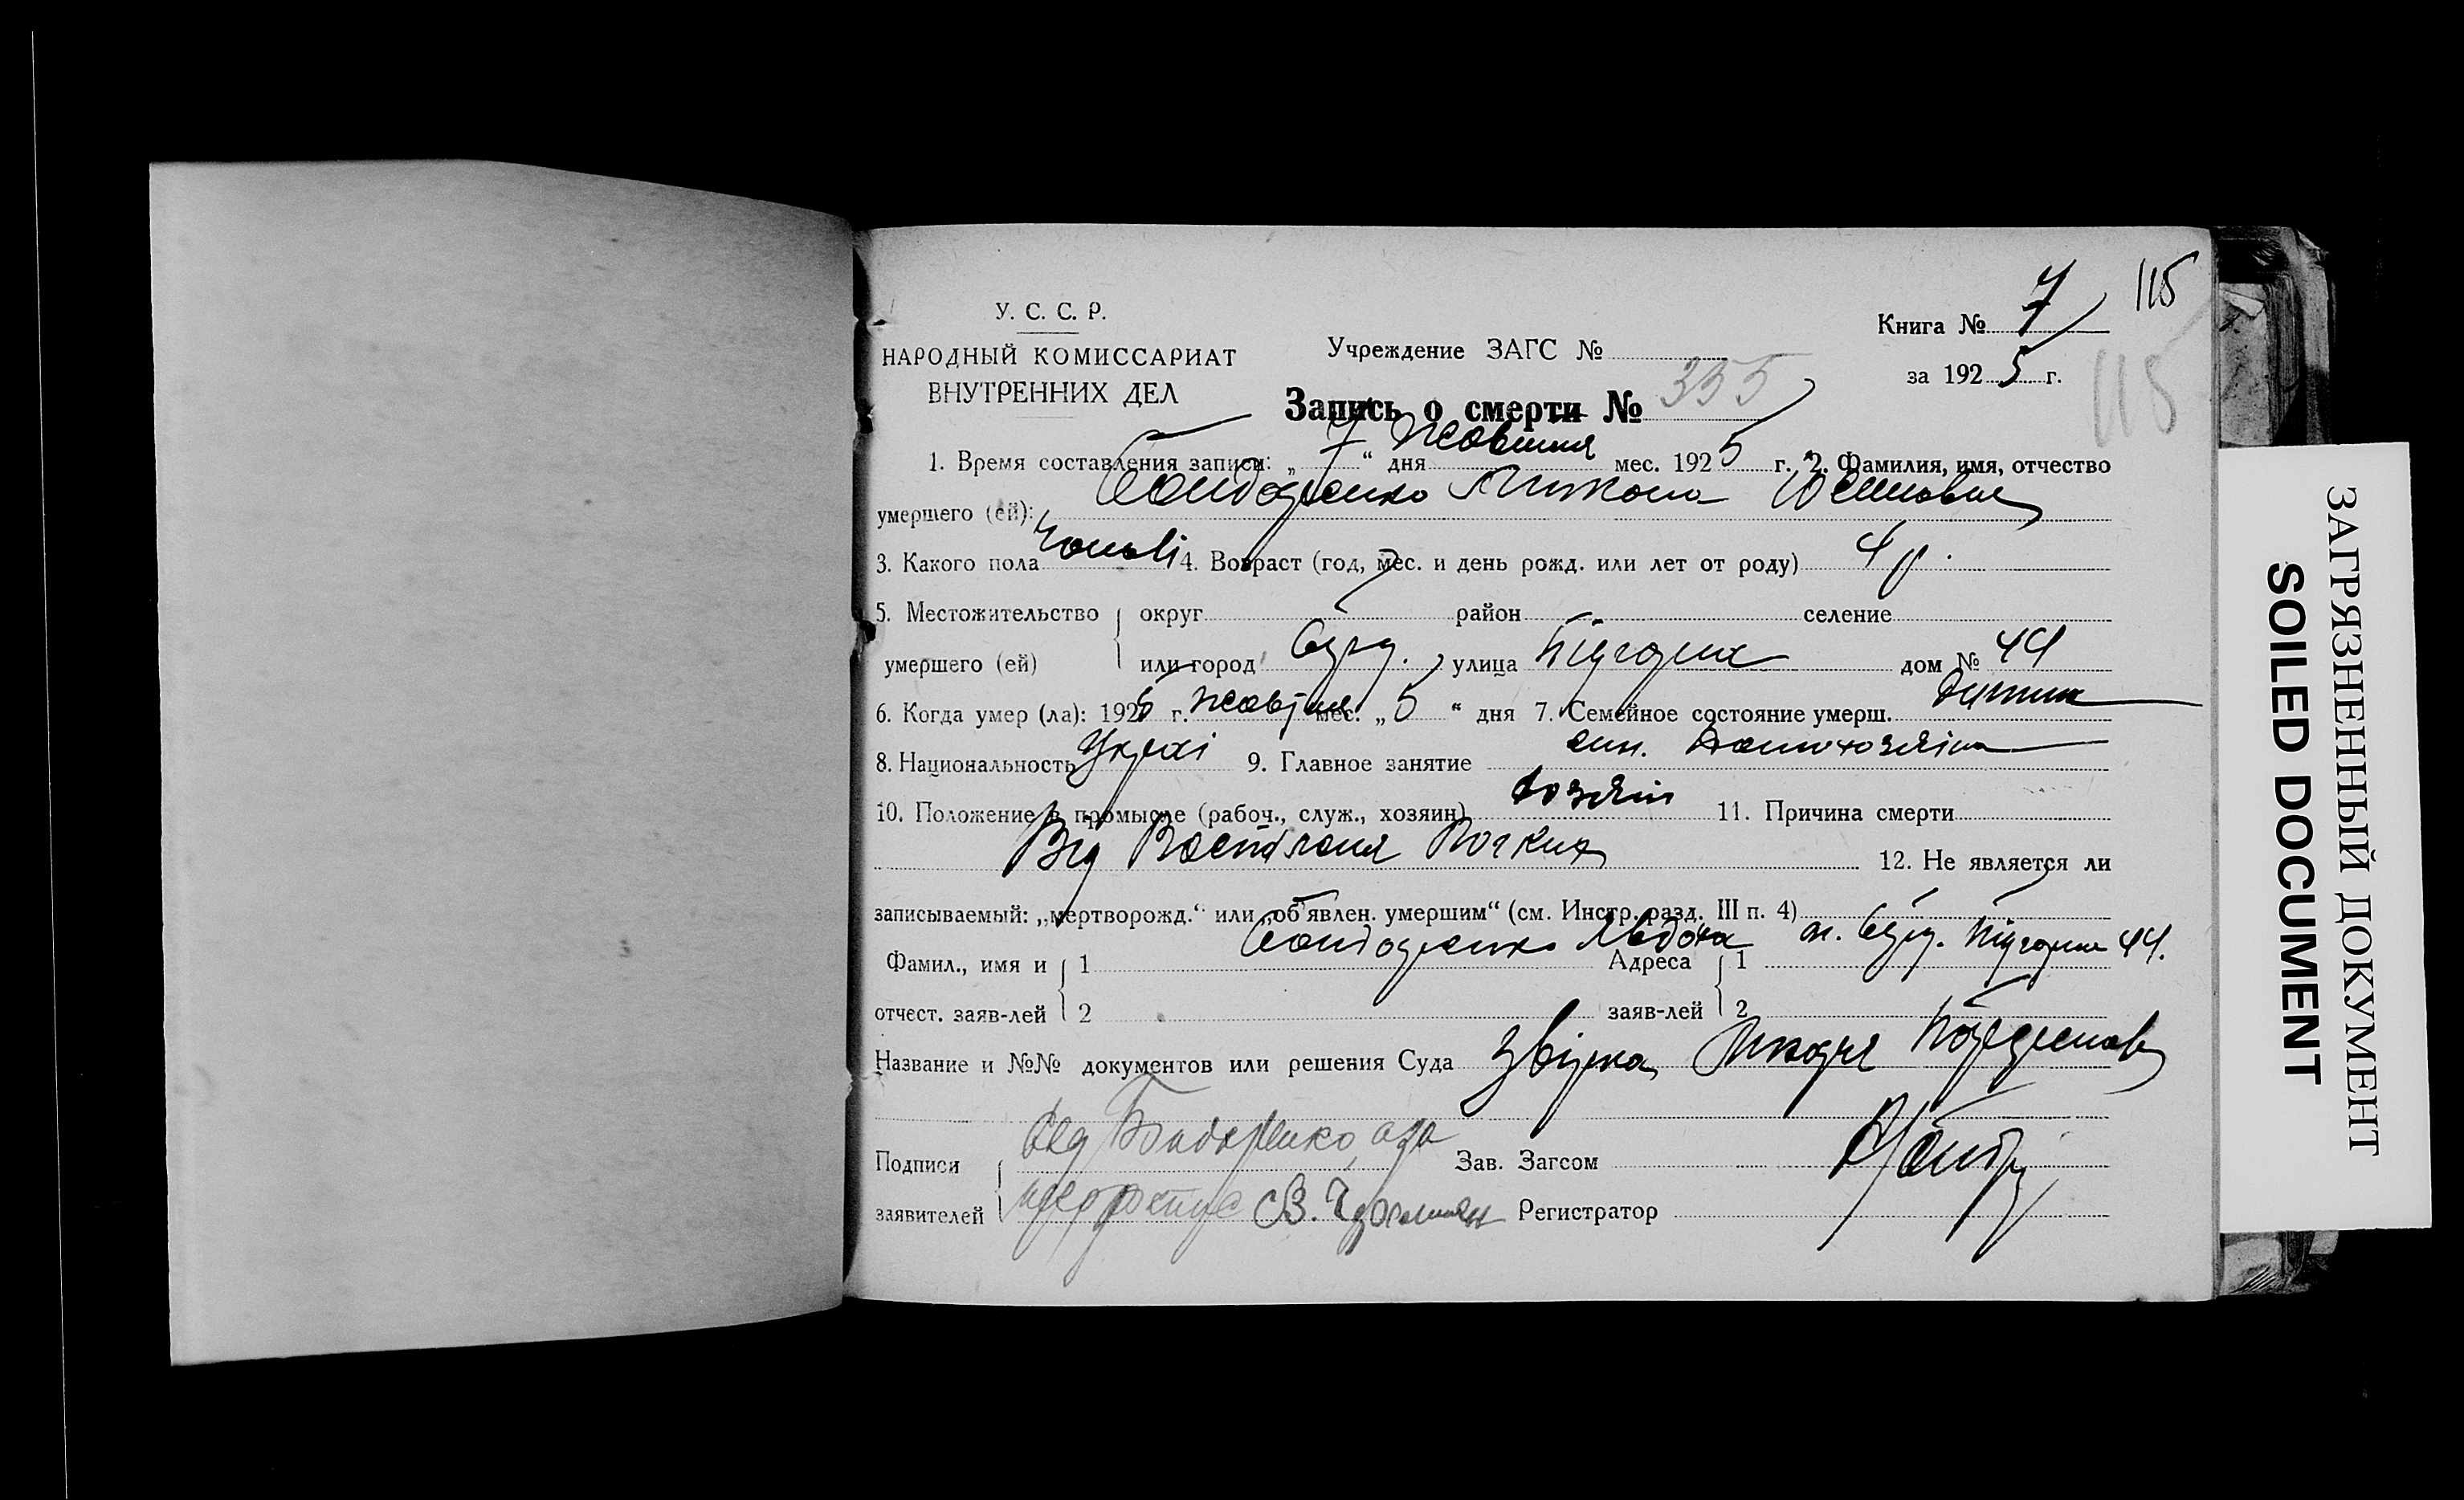 115
Книга № 7
У. С. С. Р.
НАРОДНЫЙ КОМИССАРИАТ
ВНУТРЕННИХ ДЕЛ
Учреждение ЗАГС №
за 1925 г.
115
Запись о смерти № 355
1. Время составления записи: „7“ дня Жовтня мес. 1925 г. 2. Фамилия, имя, отчество
умершего (ей): Бондаренко Микола
3. Какого пола Чолові 4. Возраст (год, мес. и день рожд. или лет от роду) 4 р.
5. Местожительство округ район селение
умершего (ей) или город улица Підгорна дом № 44
6. Когда умер (ла): 1925 г. Жовтня мес. „5“ дня 7. Семейное состояние умерш. Дитина
8. Национальность Украі 9. Главное занятие син.
10. Положение в промысле (рабоч., служ., хозяин) хозяін 11. Причина смерти
Від 12. Не является ли
записываемый: „мертворожд.“ или „об'явлен. умершим“ (см. Инстр. разд. III п. 4)
Фамил., имя и 1 Бондаренко Явдоха Адреса 1 м. Підгорна 44.
отчест. заяв-лей 2 заяв-лей 2
Название и №№ документов или решения Суда Звірка
Подписи Бондаренко, а за Зав. Загсом
заявителей Регистратор
ЗАГРЯЗНЕННЫЙ ДОКУМЕНТ
SOILED DOCUMENT